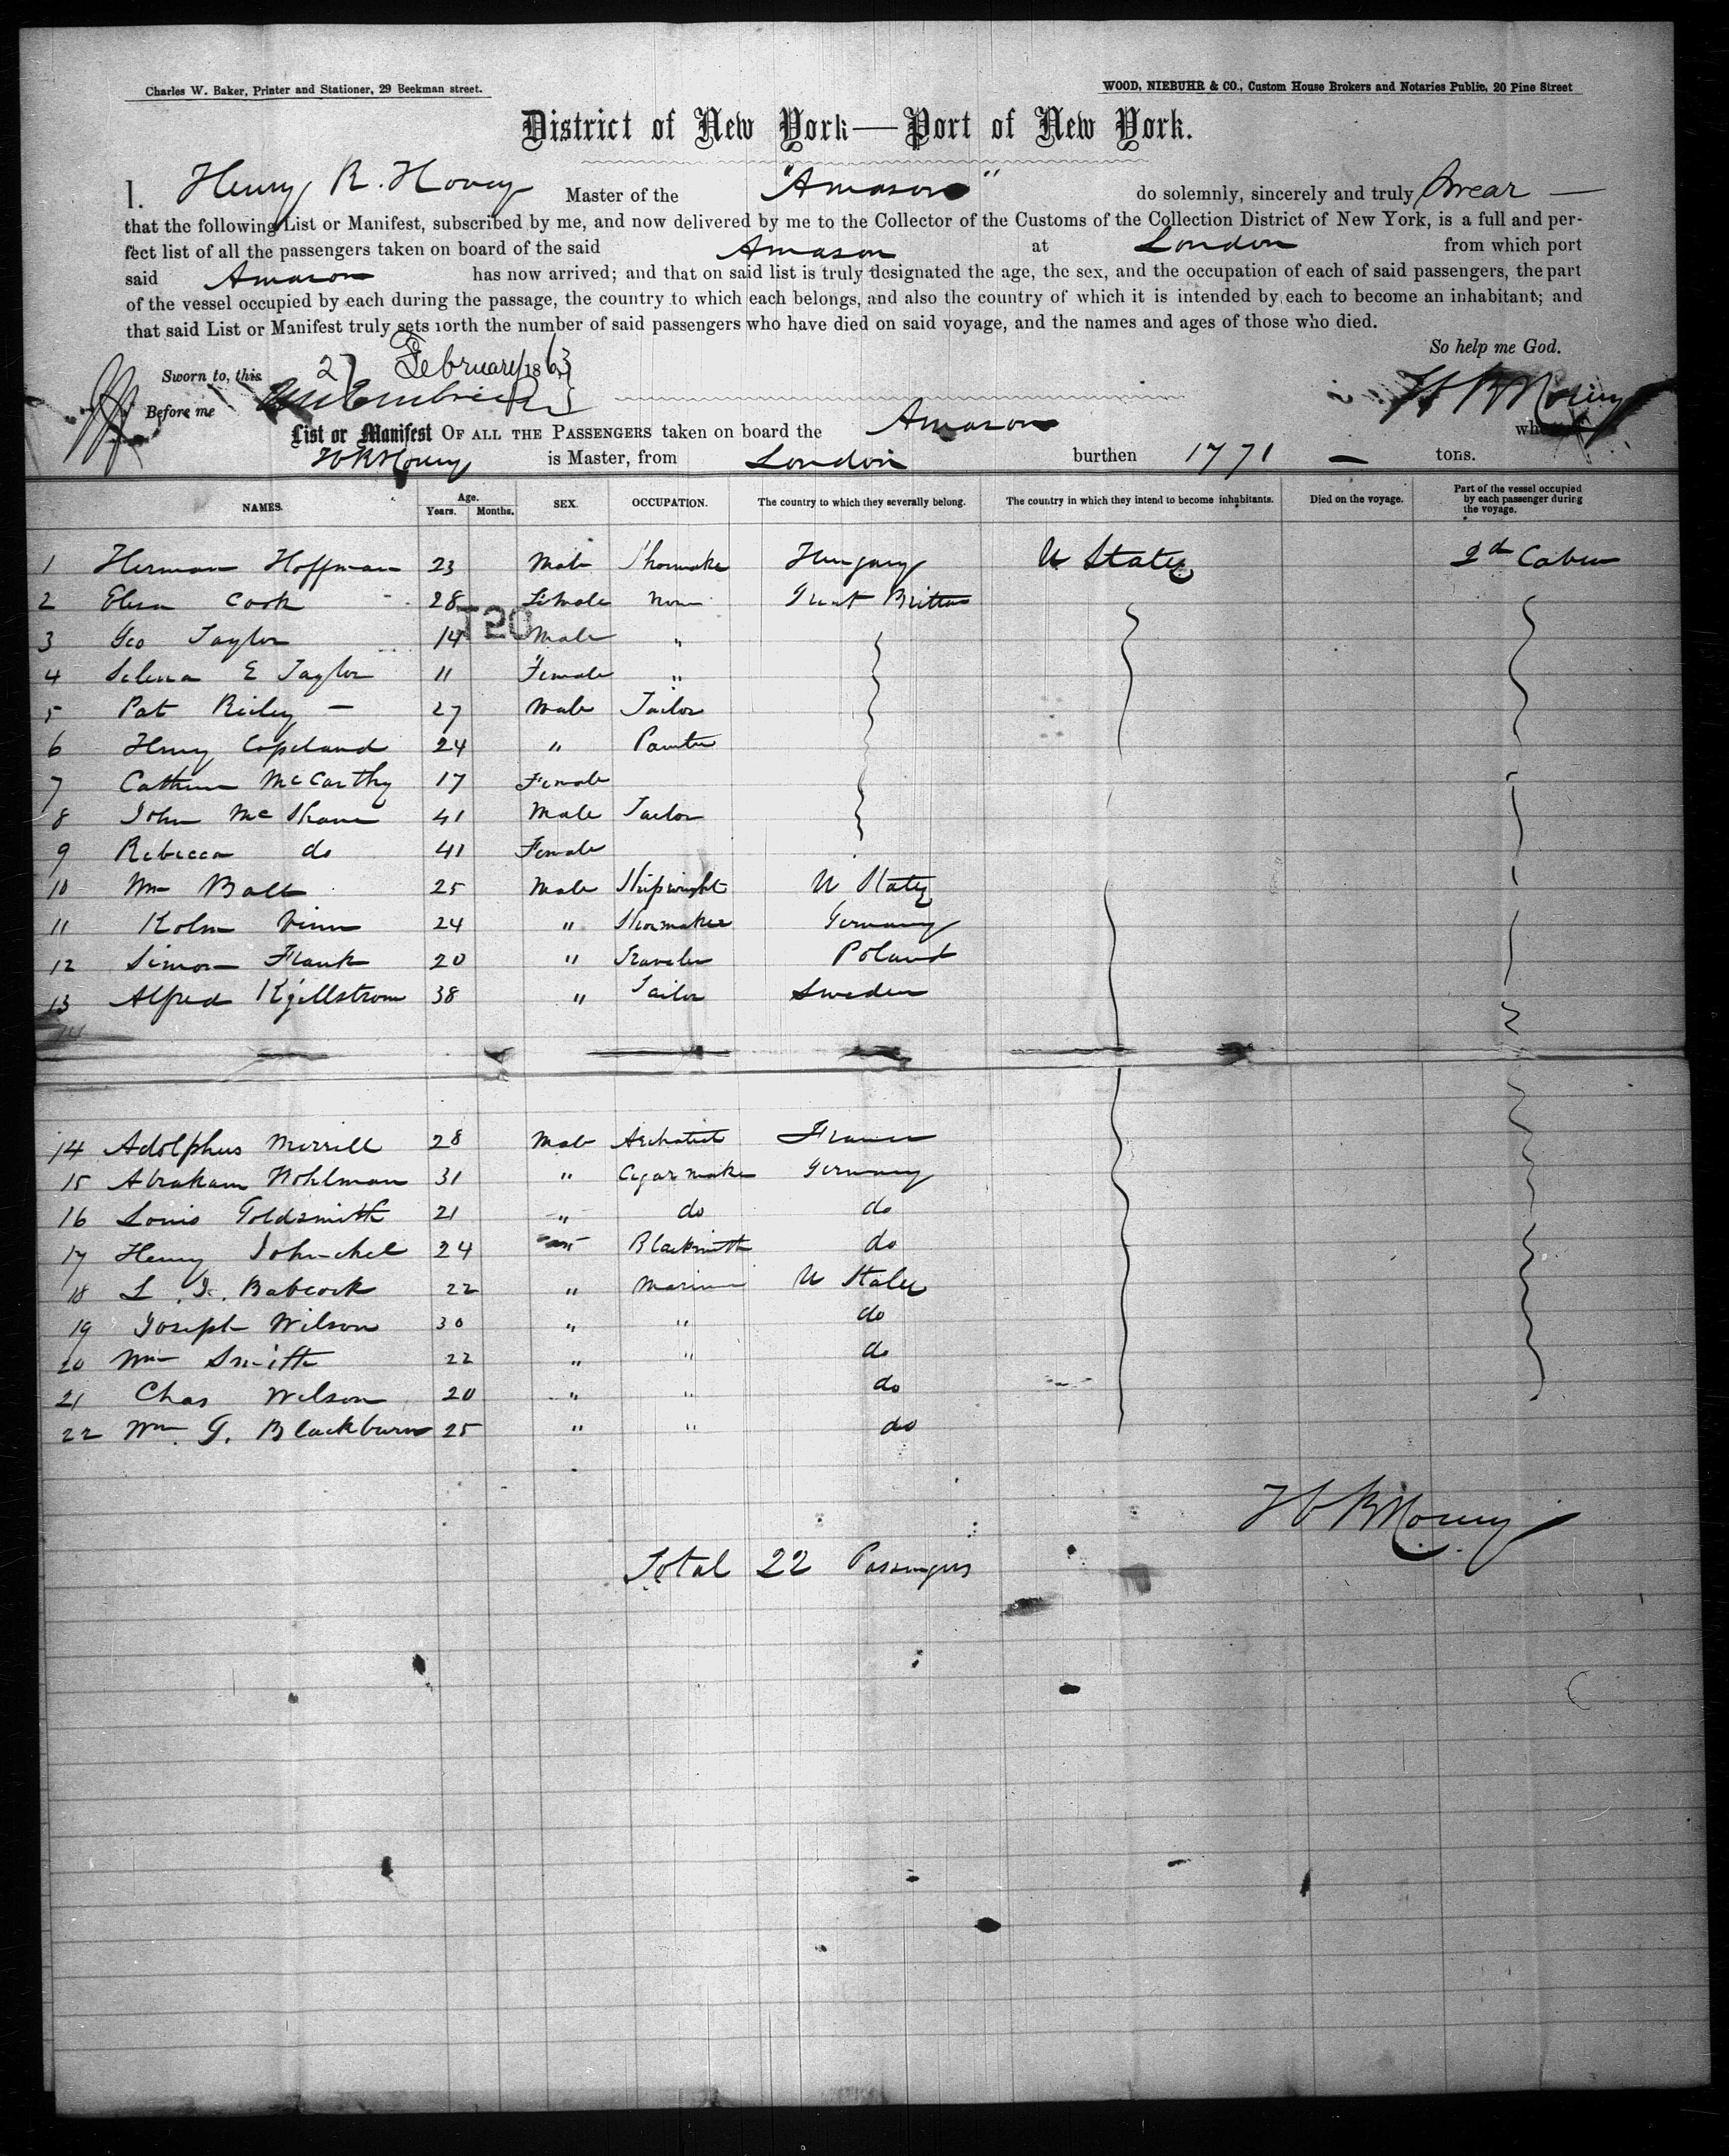 Charles W. Baker, Printer and Stationer, 29 Beekman street.
WOOD, NIEBUHR & CO., Custom House Brokers and Notaries Public, 20 Pine Street
District of New York—Port of New York.
I. Henry R. Hovey Master of the "Amazon" do solemnly, sincerely and truly Swear —
that the following List or Manifest, subscribed by me, and now delivered by me to the Collector of the Customs of the Collection District of New York, is a full and per-
fect list of all the passengers taken on board of the said Amazon at London from which port
said Amazon has now arrived; and that on said list is truly designated the age, the sex, and the occupation of each of said passengers, the part
of the vessel occupied by each during the passage, the country to which each belongs, and also the country of which it is intended by each to become an inhabitant; and
that said List or Manifest truly sets forth the number of said passengers who have died on said voyage, and the names and ages of those who died.
So help me God.
Sworn to, this 27 February 1863
Before me
H R Hovey
List or Manifest OF ALL THE PASSENGERS taken on board the Amazon
H R Hovey is Master, from London burthen 1771 — tons.
NAMES. Age. Years. Months. SEX. OCCUPATION. The country to which they severally belong. The country in which they intend to become inhabitants. Died on the voyage. Part of the vessel occupied by each passenger during the voyage.
1 Herman Hoffman 23 Male Shoemaker Hungary U States 2d Cabin
2 Elisa Cook 28 Female none Great Brittan
T20
3 Geo Taylor 14 Male "
4 Selena E Taylor 11 Female "
5 Pat Reiley — 27 Male Tailor
6 Henry Copeland 24 " Painter
7 Cathrine McCarthy 17 Female
8 John McShane 41 Male Tailor
9 Rebecca do 41 Female
10 Wm Ball 25 Male Shipwright U States
11 24 " Shoemaker Germany
12 Simon Frank 20 " Traveler Poland
13 Alfred Kjellstrom 38 " Tailor Sweden
14
14 Adolphus Merrill 28 Male Architect France
15 Abraham Wohlman 31 " Cigar maker Germany
16 Louis Goldsmith 21 " do do
17 Henry 24 Blacksmith do
18 L. Babcock 22 " Mariner U States
19 Joseph Wilson 30 " " do
20 Wm Smith 22 " " do
21 Chas Wilson 20 " " do
22 Wm G. Blackburn 25 " " do
H R Hovey
Total 22 Passengers